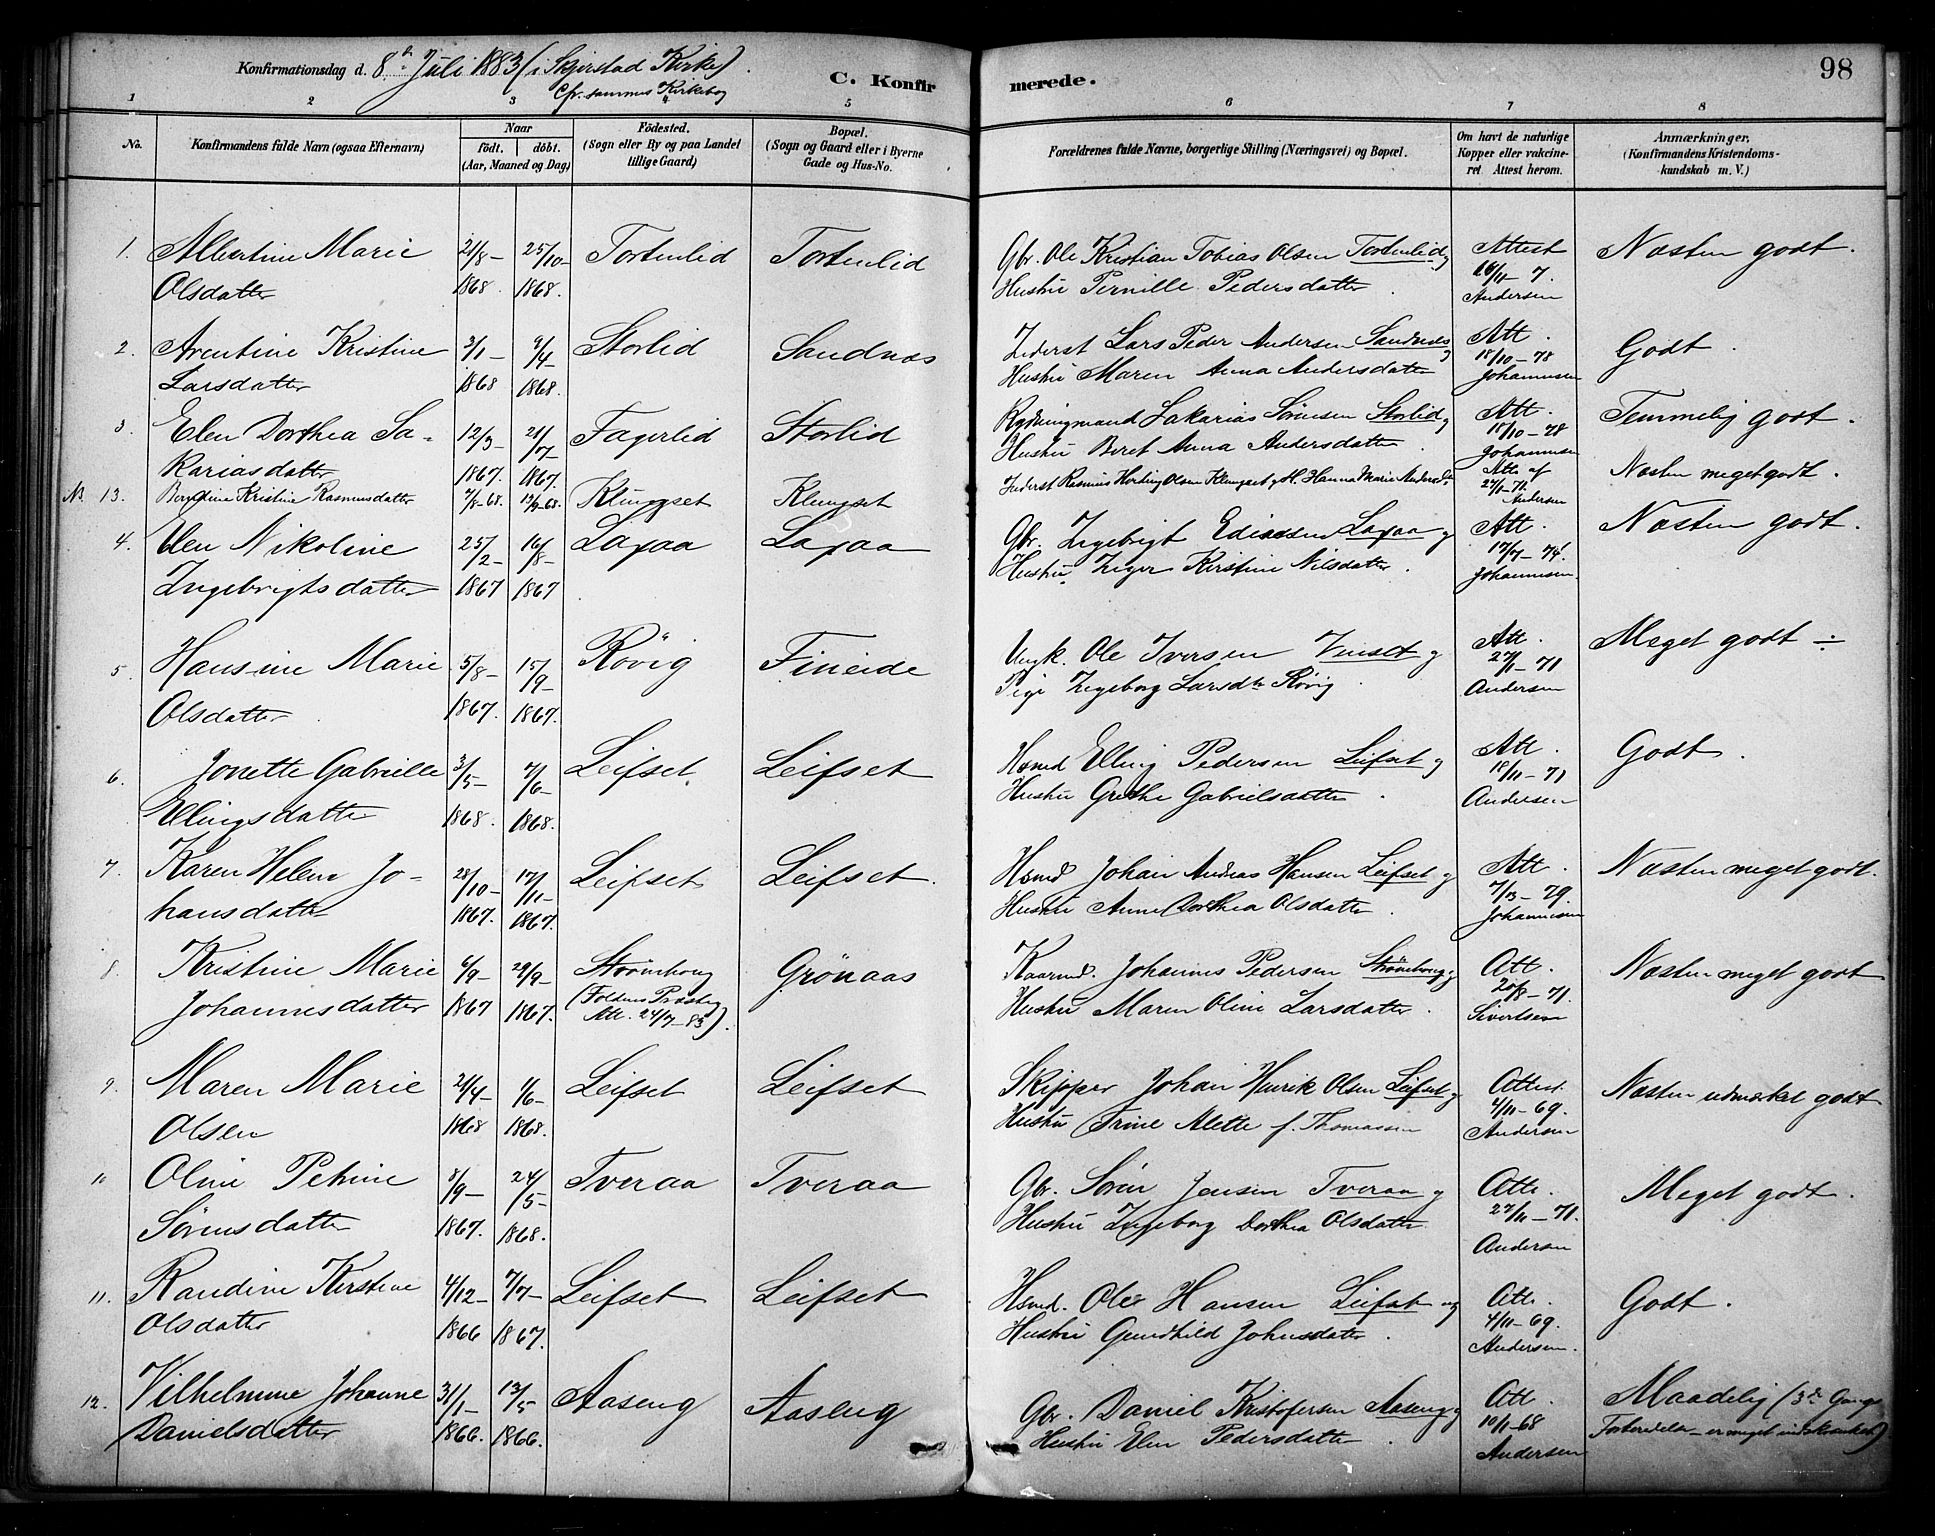 98
Konfirmationsdag d. 8de Juli 1883 (i Skjerstad Kirke).
Cfr. sammes Kirkebog
C. Konfirmerede.
1 2 3 5 6 7 8
No. Konfirmandens fulde Navn (ogsaa Efternavn) Naar født. døbt. (Aar, Maaned og Dag) Födested. (Sogn eller By og paa Landet tillige Gaard) Bopæl. (Sogn og Gaard eller i Byerne Gade og Hus-No. Forældrenes fulde Navne, borgerlige Stilling (Næringsvei) og Bopæl. Om havt de naturlige Kopper eller vakcineret Attest herom. Anmærkninger, (Konfirmandens Kristendomskundskab m. V.)
1. Albertine Marie 21/8- 25/10- Tortenlid Tortenlid Gbr. Ole Kristian Tobias Olsen Tortenlid og Attest Næsten godt.
Olsdatter 1868. 1868. Hustru Pernille Pedersdatter. Andersen
2. Arentine Kristine 3/1- 9/4- Storlid Sandnæs Inderst Lars Peder Andersen Sandnæs og Att. 18/10-78 Godt.
Larsdatter 1868 1868. Hustru Maren Anna Andersdatter Johannesen
3. Elen Dorthea Sa- 12/3- 21/7- Fagerlid Storlid Rydningmand Sakarias Sörensen Storlid og Att. 18/10-78 Temmelig godt.
kariasdatter 1867. 1867. Hustru Beret Anna Andersdatter. Johannesen
13. Berg̃dine Kristine Rasmusdatter 7/8-68. 13/9-68. Klungset Klungset Inderst Rasmus Horting Olsen Klungset og H. Hanna Marie Andersdtr. Att. af 27/11-71. Andersen Næsten meget godt.
4. Elen Nikoline 25/2- 16/8- Laxaa Laxaa Gbr. Ingebrigt Ediassen Laxaa og Att. 17/7-74. Næsten godt.
Ingebrigtsdatter 1867 1867 Hustru Inger Kirstine Nilsdatter. Johannesen.
5. Hansine Marie 5/8- 15/9- Rövig Fineide Ungk. Ole Iversen Venset og Att. 27/11-71 Meget godt ÷
Olsdatter 1867. 1867. Pige Ingeborg Larsdtr Rövig. Andersen
6. Jonette Gabrielle 3/5- 7/6- Leifset. Leifset Hsmd Elling Pedersen Leifset og Att. 18/11-71 Godt.
Ellingsdatter 1868. 1868. Hustru Grethe Gabrielsdatter. Andersen
7. Karen Helene Jo- 28/10- 17/11- Leifset Leifset. Hsmd Johan Andreas Hansen Leifset og Att. Næsten meget godt.
hansdatter 1867. 1867. Hustru Anne Dorthea Olsdatter. Johannesen
8. Kristine Marie 6/9- 29/9- Strömhaug Grönaas Kaarmd. Johannes Pedersen Strömhaug og Att. 20/8-71. Næsten meget godt
Johannesdatter 1867 1867. (Foldens Præstegj. Att. 24/4-83). Hustru Maren Oline Larsdatter. Sivertsen
9. Maren Marie 21/4- 1/6- Leifset Leifset Skipper Johan Henrik Olsen Leifset og Attest. 4/11-69. Næsten udmærket godt
Olsen 1868 1868. Hustru Trine Alette f. Thomassen Andersen
11 Oline Petrine 8/9- 24/5- Tveraa Tveraa Gbr. Sören Jensen Tveraa og Att. 27/11-71. Meget godt.
Sörensdatter 1867. 1868. Hustru Ingeborg Dorthea Olsdatter Andersen
11. Randine Kirstine 4/12- 7/7- Leifset Leifset Hsmd. Ole Hansen Leifset og Att. 4/11-69. Godt.
Olsdatter 1866 1867. Hustru Gundhild Johnsdatter. Andersen.
12. Vilhelmine Johanne 31/1- 13/5- Aaseng Aaseng Gbr. Daniel Kristofersen Aaseng og Att. 10/1-68 Maadelig (3de Gangs
Danielsdatter 1866. 1866. Hustru Elen Pedersdatter. Andersen Forberedelse – er meget indskrænket)